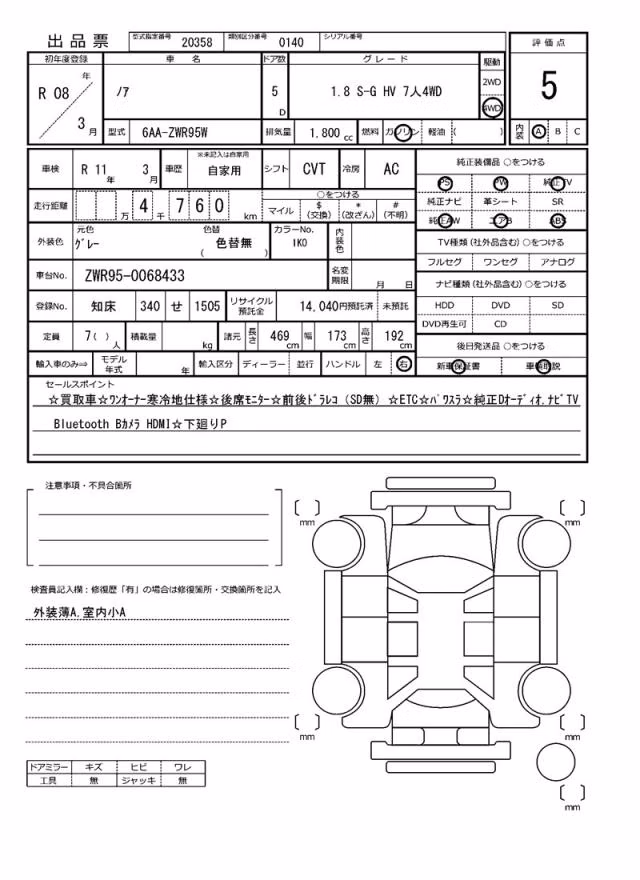 出品票 型式指定番号 20358 類別区分番号 0140 シリアル番号
評価点
5
内装 A B C
初年度登録 車名 ドア数 グレード 駆動
R 08 年 3 月
ノア 5 D 1.8 S-G HV 7人4WD 2WD 4WD
型式 6AA-ZWR95W 排気量 1.800 cc 燃料 ガソリン 軽油 ( )
車検 R 11 年 3 月 車歴 ※未記入は自家用 自家用 シフト CVT 冷房 AC
走行距離 万 4 千 7 6 0 km
○をつける
マイル $(交換) *(改ざん) #(不明)
外装色 元色 グレー 色替 ( 色替無 ) カラーNo. 1K0 内装色
車台No. ZWR95-0068433 名変期限 月 日
登録No. 知床 340 せ 1505 リサイクル預託金 14,040円預託済 未預託
定員 7( )人 積載量 kg 諸元 長さ 469 cm 幅 173 cm 高さ 192 cm
輸入車のみ⇒ モデル年式 年 輸入区分 ディーラー 並行 ハンドル 左 右
純正装備品 ○をつける
PS PW 純正TV
純正ナビ 革シート SR
純正AW エアB ABS
TV種類 (社外品含む) ○をつける
フルセグ ワンセグ アナログ
ナビ種類 (社外品含む) ○をつける
HDD DVD SD
DVD再生可 CD
後日発送品 ○をつける
新車保証書 車輌取説
セールスポイント
☆買取車☆ワンオーナー寒冷地仕様☆後席モニター☆前後ドラレコ (SD無) ☆ETC☆パワスラ☆純正Dオーディオ.ナビTV
Bluetooth Bカメラ HDMI☆下廻りP
注意事項・不具合箇所
検査員記入欄：修復歴「有」の場合は修復箇所・交換箇所を記入
外装薄A.室内小A
ドアミラー キズ ヒビ ワレ
工具 無 ジャッキ 無
mm
mm
mm
mm
mm